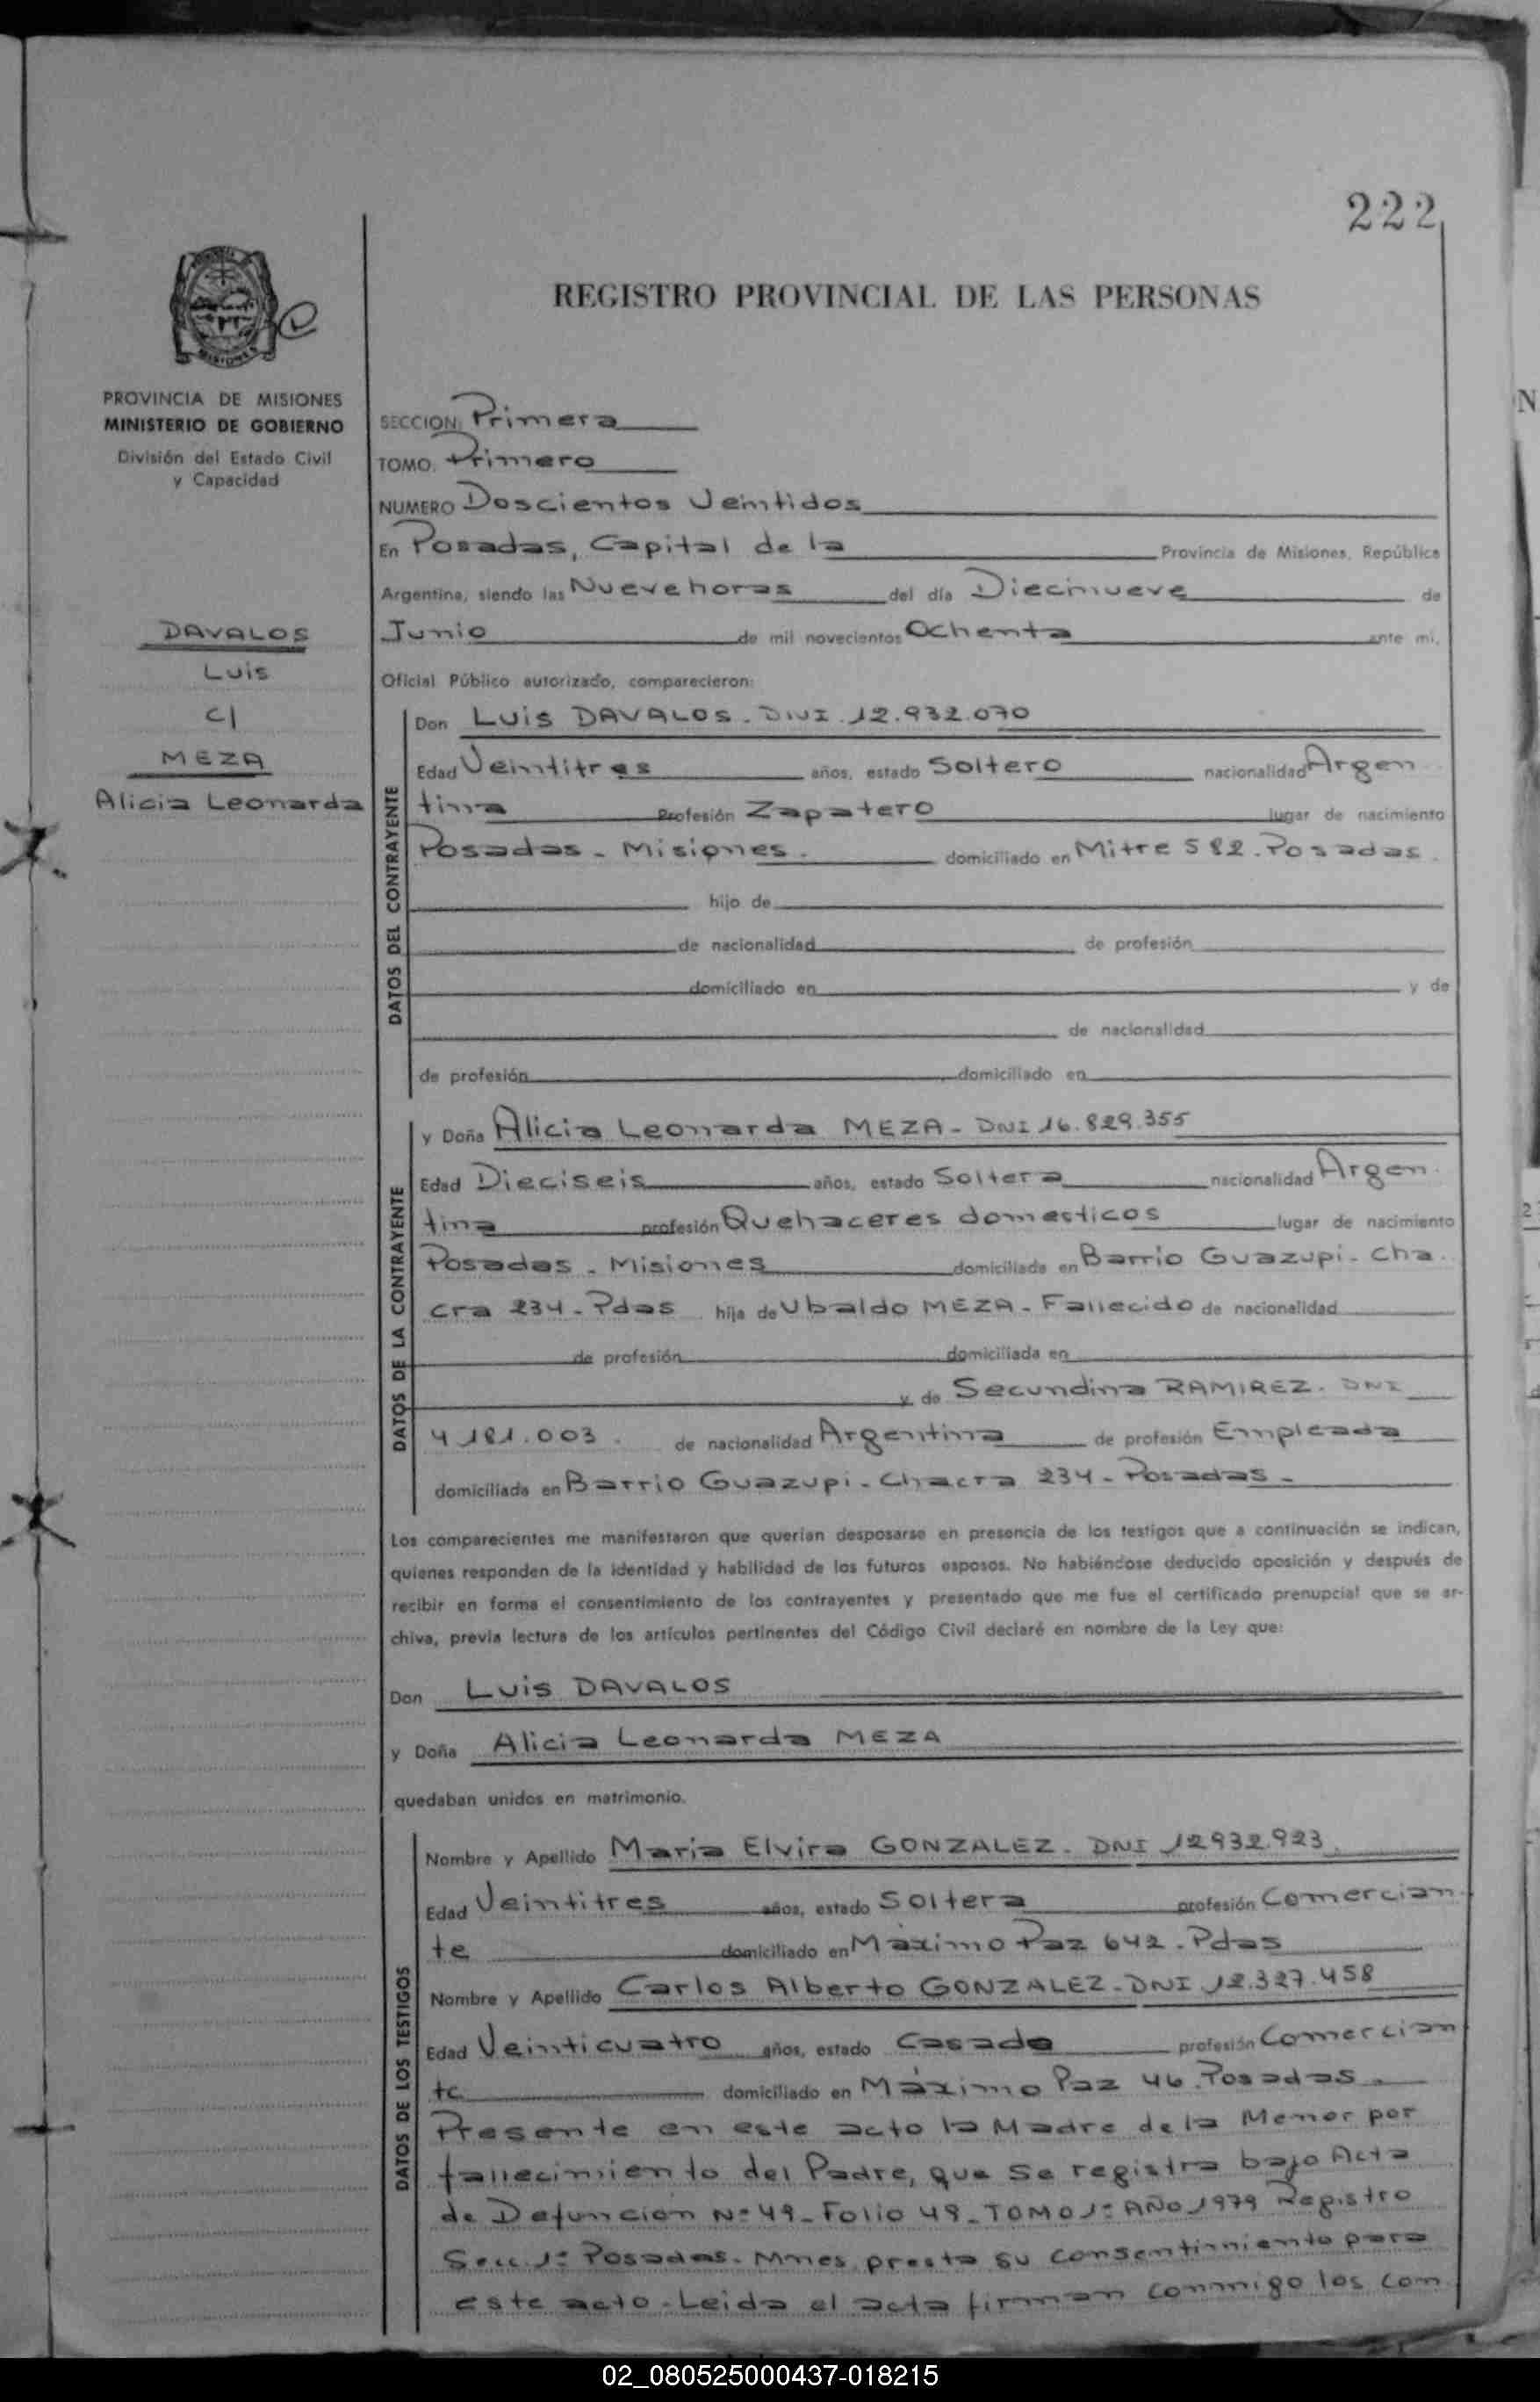 222
REGISTRO PROVINCIAL DE LAS PERSONAS
MISIONES
PROVINCIA DE MISIONES
MINISTERIO DE GOBIERNO
División del Estado Civil
y Capacidad
DAVALOS
Luis
c/
MEZA
Alicia Leonarda
SECCION: Primera
TOMO: Primero
NUMERO Doscientos Veintidos
En Posadas, Capital de la Provincia de Misiones, República
Argentina, siendo las Nueve horas del día Diecinueve de
Junio de mil novecientos Ochenta ante mi,
Oficial Público autorizado, comparecieron:
DATOS DEL CONTRAYENTE
Don Luis DAVALOS. DNI. 12.932.070
Edad Veintitres años, estado Soltero nacionalidad Argen
tina Profesión Zapatero lugar de nacimiento
Posadas - Misiones. domiciliado en Mitre 582. Posadas.
hijo de
de nacionalidad de profesión
domiciliado en y de
de nacionalidad
de profesión domiciliado en
DATOS DE LA CONTRAYENTE
y Doña Alicia Leonarda MEZA - DNI 16.829.355
Edad Dieciseis años, estado Soltera nacionalidad Argen
tina profesión Quehaceres domesticos lugar de nacimiento
Posadas - Misiones domiciliada en Barrio Guazupi - Cha
cra 234 - Pdas hija de Ubaldo MEZA - Fallecido de nacionalidad
de profesión domiciliada en
y de Secundina RAMIREZ. DNI
4.181.003. de nacionalidad Argentina de profesión Empleada
domiciliada en Barrio Guazupi - Chacra 234 - Posadas -
Los comparecientes me manifestaron que querían desposarse en presencia de los testigos que a continuación se indican,
quienes responden de la identidad y habilidad de los futuros esposos. No habiéndose deducido oposición y después de
recibir en forma el consentimiento de los contrayentes y presentado que me fue el certificado prenupcial que se ar-
chiva, previa lectura de los artículos pertinentes del Código Civil declaré en nombre de la Ley que:
Don Luis DAVALOS
y Doña Alicia Leonarda MEZA
quedaban unidos en matrimonio.
DATOS DE LOS TESTIGOS
Nombre y Apellido Maria Elvira GONZALEZ - DNI 12932.923
Edad Veintitres años, estado Soltera profesión Comercian
te domiciliado en Máximo Paz 642 - Pdas
Nombre y Apellido Carlos Alberto GONZALEZ - DNI 12.327.458
Edad Veinticuatro años, estado Casado profesión Comercian
te domiciliado en Máximo Paz 46. Posadas.
Presente en este acto la Madre de la Menor por
fallecimiento del Padre, que se registra bajo Acta
de Defunción Nº 49 - Folio 49 - TOMO 1º AÑO 1979 Registro
Secc. 1º Posadas - Mnes, presta su consentimiento para
este acto - Leida el acta firman conmigo los con
02_080525000437-018215